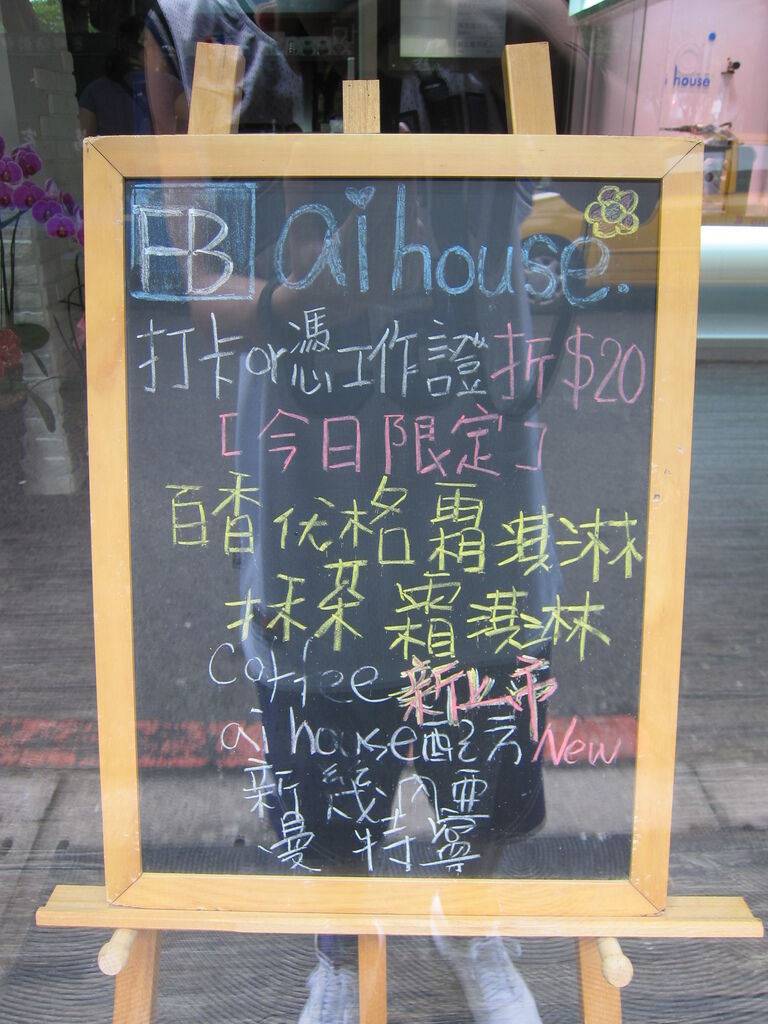 house
FB ai house.
打卡or憑工作證折$20
[今日限定]
百香优格霜淇淋
抹茶霜淇淋
coffee新上市
ai house配方New
新幾內亞
曼特寧